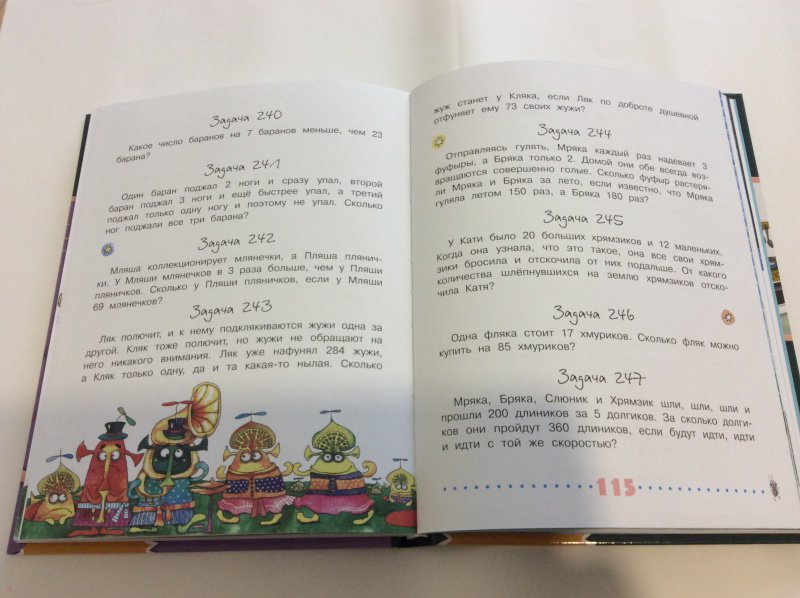 Задача 240
Какое число баранов на 7 баранов меньше, чем 23
барана?
Задача 241
Один баран поджал 2 ноги и сразу упал, второй
баран поджал 3 ноги и ещё быстрее упал, а третий
поджал только одну ногу и поэтому не упал. Сколько
ног поджали все три барана?
Задача 242
Мляша коллекционирует млянечки, а Пляша плянич-
ки. У Мляши млянечков в 3 раза больше, чем у Пляши
пляничков. Сколько у Пляши пляничков, если у Мляши
69 млянечков?
Задача 243
Ляк полючит, и к нему подклякиваются жужи одна за
другой. Кляк тоже полючит, но жужи не обращают на
него никакого внимания. Ляк уже нафунял 284 жужи,
а Кляк только одну, да и та какая-то нылая. Сколько
жуж станет у Кляка, если Ляк по доброте душевной
отфуняет ему 73 своих жужи?
Задача 244
Отправляясь гулять, Мряка каждый раз надевает 3
фуфыры, а Бряка только 2. Домой они обе всегда воз-
вращаются совершенно голые. Сколько фуфыр растеря-
ли Мряка и Бряка за лето, если известно, что Мряка
гуляла летом 150 раз, а Бряка 180 раз?
Задача 245
У Кати было 20 больших хрямзиков и 12 маленьких.
Когда она узнала, что это такое, она все свои хрям-
зики бросила и отскочила от них подальше. От какого
количества шлёпнувшихся на землю хрямзиков отско-
чила Катя?
Задача 246
Одна фляка стоит 17 хмуриков. Сколько фляк можно
купить на 85 хмуриков?
Задача 247
Мряка, Бряка, Слюник и Хрямзик шли, шли, шли и
прошли 200 длиников за 5 долгиков. За сколько долги-
ков они пройдут 360 длиников, если будут идти, идти
и идти с той же скоростью?
115